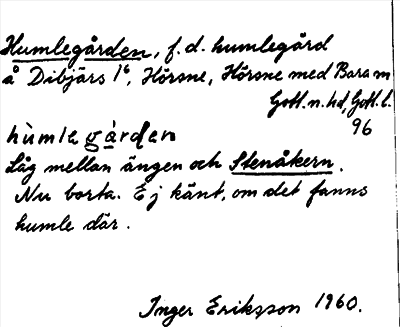 Humlegården, f. d. humlegård
å Dibjärs 1⁶, Hörsne, Hörsne med Bara sn
Gotl. n. hd, Gotl. l.
96
hùmlegården
Låg mellan ängen och Stenåkern.
Nu borta. Ej känt, om det fanns
humle där.
Inger Eriksson 1960.